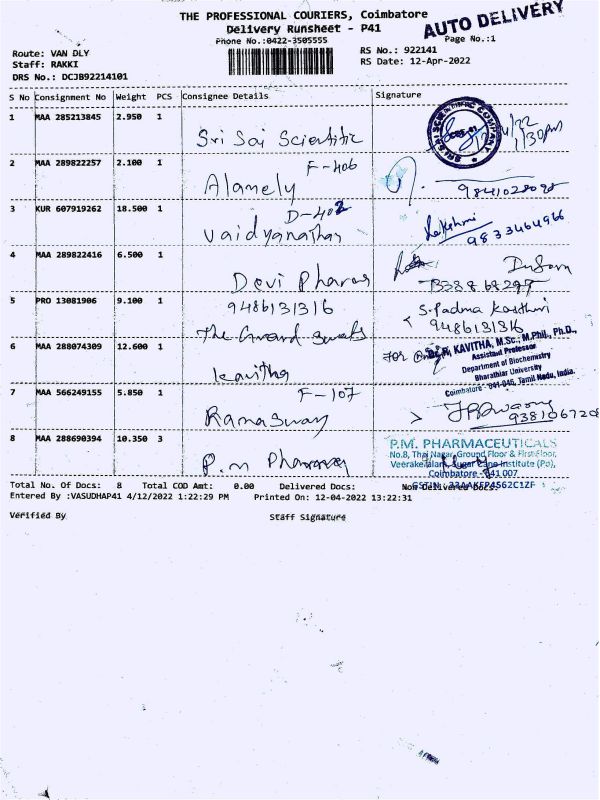 THE PROFESSIONAL COURIERS, Coimbatore
AUTO DELIVERY
Delivery Runsheet - P41
Phone No.:0422-3505555
Page No.:1
Route: VAN DLY
RS No.: 922141
Staff: RAKKI
RS Date: 12-Apr-2022
DRS No.: DCJB92214101
S No Consignment No Weight PCS Consignee Details Signature
1 MAA 285213845 2.950 1
Sri Sai Scientific
1:30pm
2 MAA 289822257 2.100 1
F-406
Alamely
3 KUR 607919262 18.500 1
D-402
Vaidyanathan
Lakshmi
9833464966
4 MAA 289822416 6.500 1
Devi Pharma
5 PRO 13081906 9.100 1
9486131316
S. Padma Kasthuri
9486131316
The Grand sweets
6 MAA 288074309 12.600 1
Kavitha
For Dr. R. KAVITHA, M.Sc., M.Phil., Ph.D.,
Assistant Professor
Department of Biochemistry
Bharathiar University
Coimbatore - 641 046, Tamil Nadu, India.
7 MAA 566249155 5.850 1
F-107
Ramaswamy
9381067208
8 MAA 288690394 10.350 3
P.m Pharma
P.M. PHARMACEUTICALS
No.8, Thai Nagar Ground Floor & First Floor,
Veerakeralam, Sugar Cane Institute (Po),
Coimbatore - 641 007
Total No. Of Docs: 8 Total COD Amt: 0.00 Delivered Docs: Non Delivered Docs:
Entered By :VASUDHAP41 4/12/2022 1:22:29 PM Printed On: 12-04-2022 13:22:31
Verified By Staff Signature